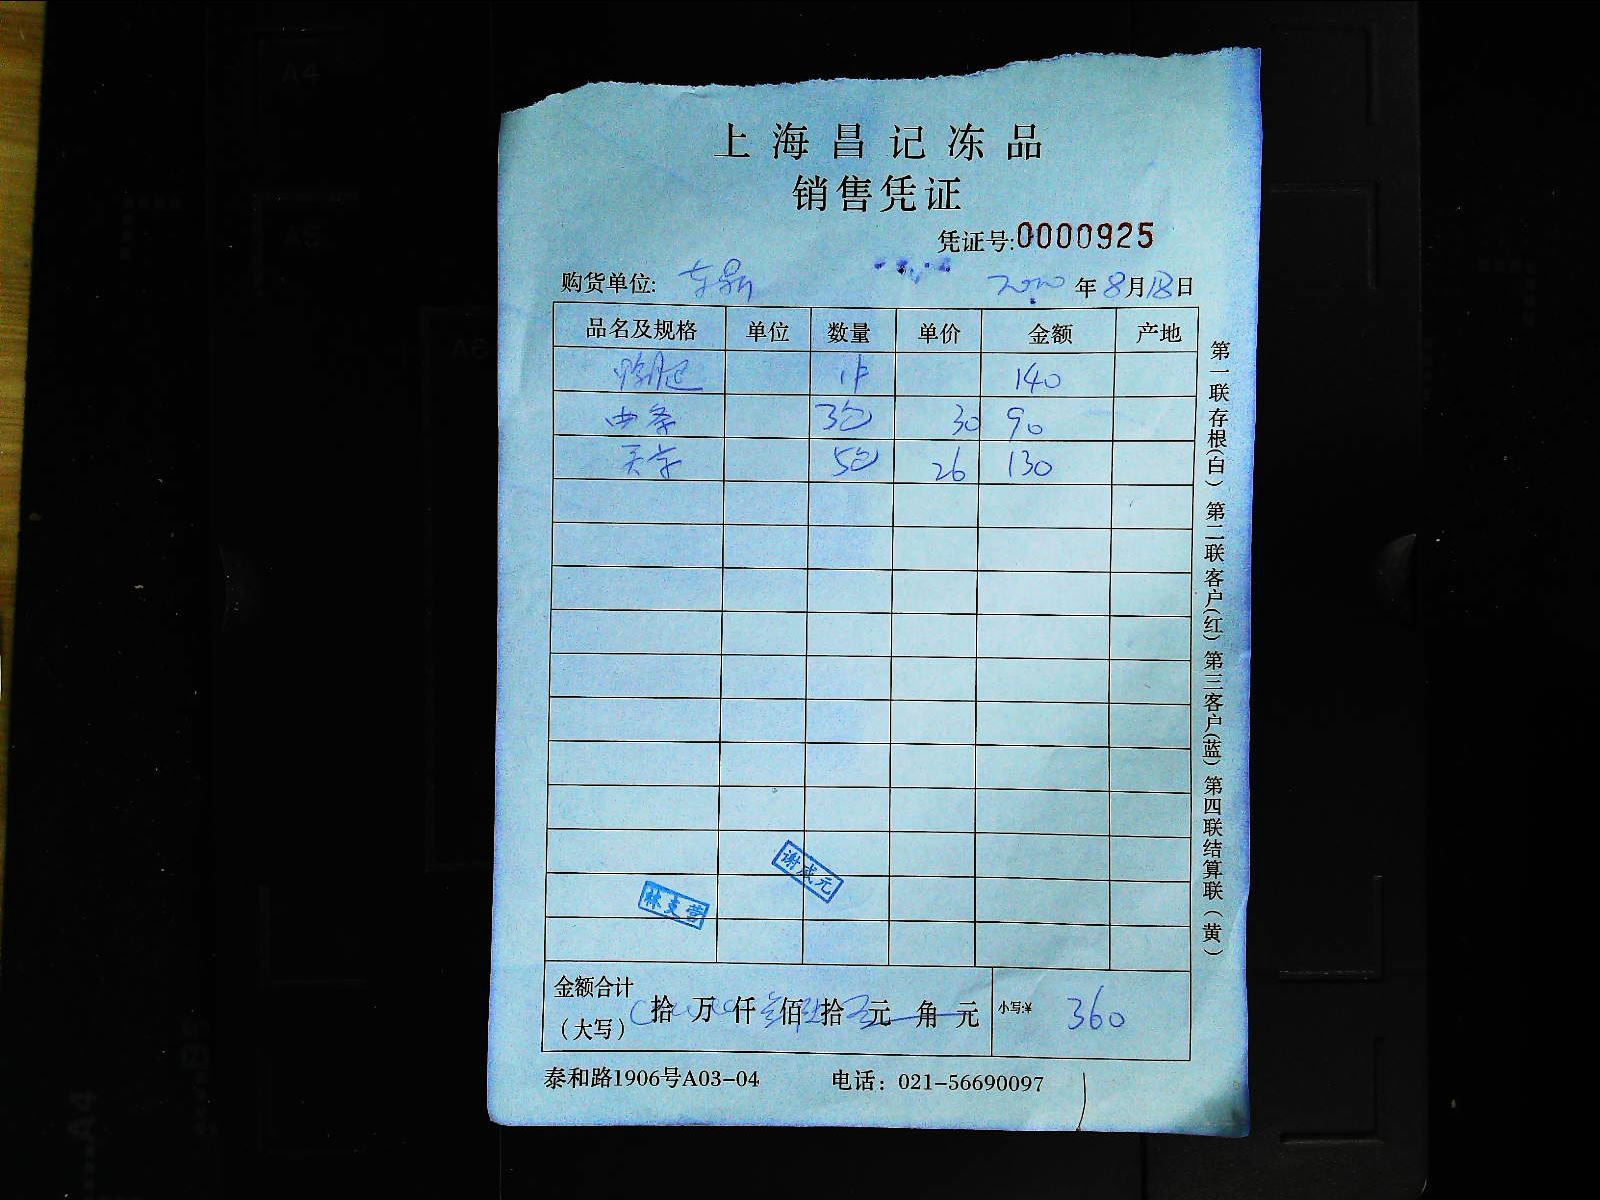 上海昌记冻品
销售凭证
凭证号:0000925
购货单位: 东鼎 2020年8月18日
品名及规格 单位 数量 单价 金额 产地
1件 140
曲条 3包 30 90
5包 26 130
谢成元
林支营
金额合计
(大写) 拾万仟叁佰陆拾元角元 小写:¥ 360
泰和路1906号A03-04 电话: 021-56690097
第一联存根(白) 第二联客户(红) 第三客户(蓝) 第四联结算联(黄)